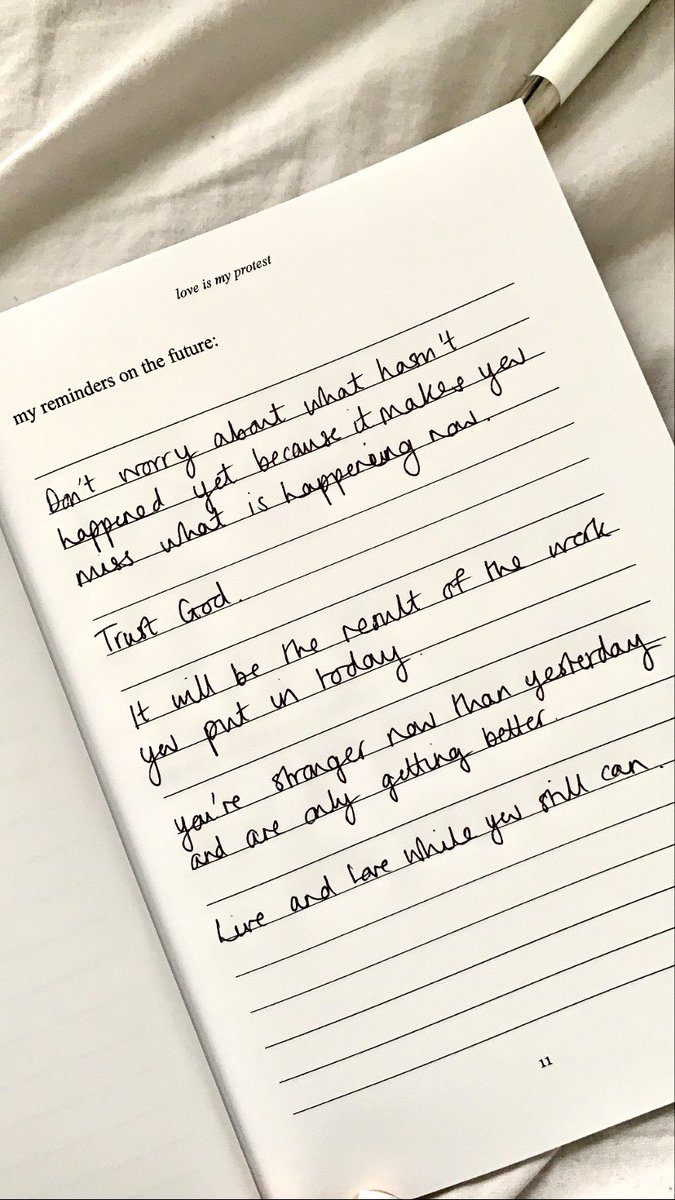 love is my protest
my reminders on the future:
Don't worry about what hasn't
happened yet because it makes you
miss what is happening now.
Trust God.
It will be the result of the work
you put in today.
you're stronger now than yesterday
and are only getting better.
Live and Love while you still can.
11